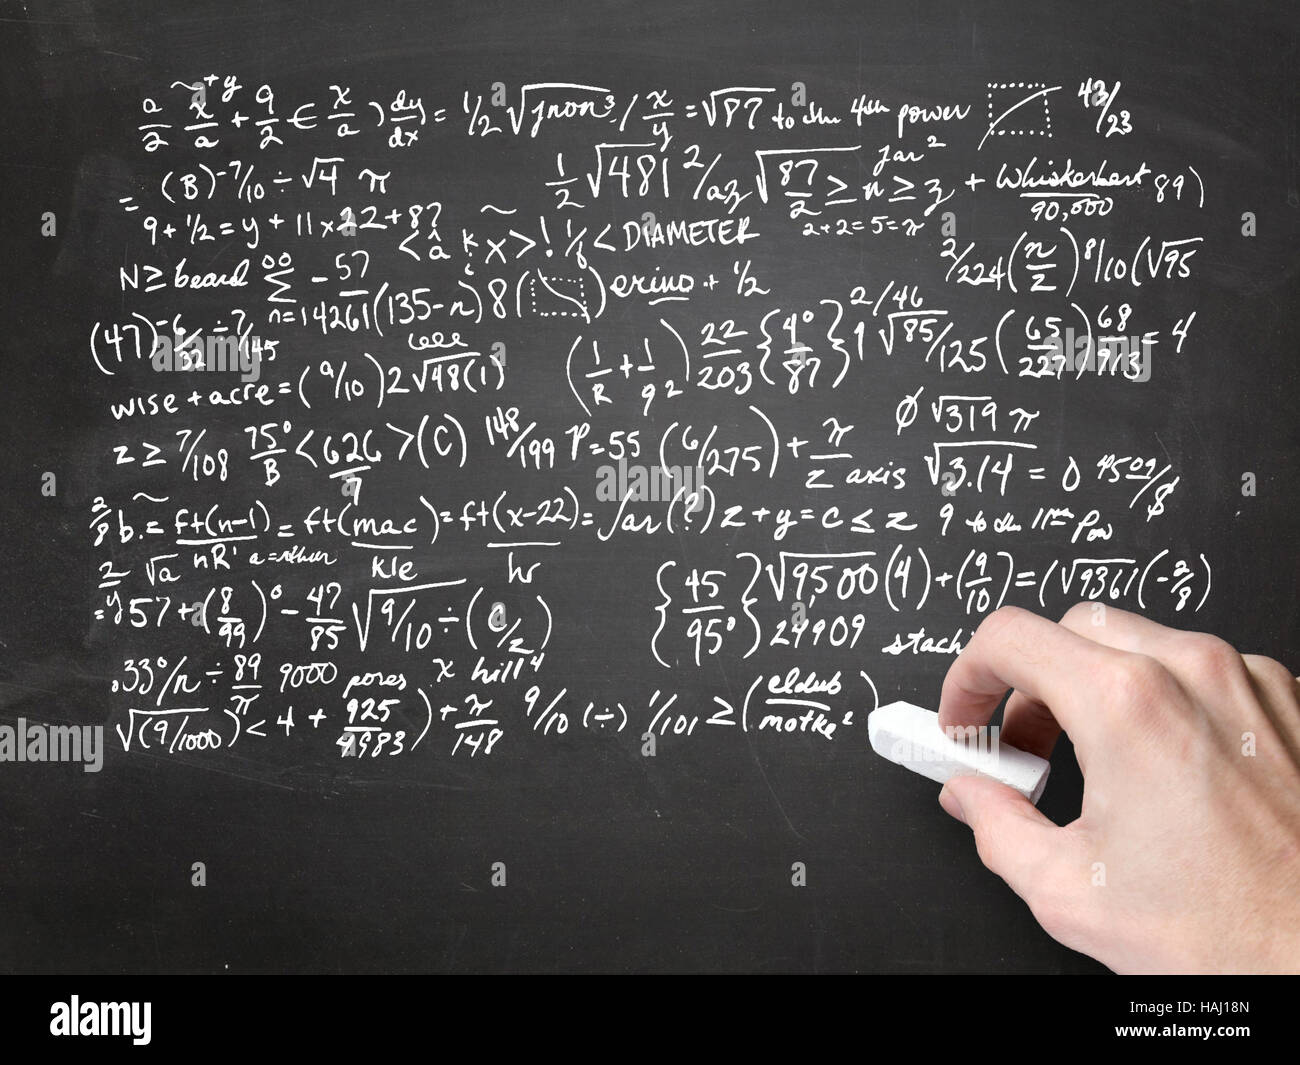 a/2 ~ x/a +y + 9/2 € x/a ) dy/dx = 1/2 √jnon³ / x/y = √87 to the 4th power 43/23
= (B)⁻⁷/10 ÷ √4 π 1/2 √481 2/az √87/2 ≥ n ≥ z + Whiskerbert 89) / 90,000
jar²
9 + 1/2 = y + 11 x 22 + 8? 2+2=5=π
< â k x > ! 1/6 < DIAMETER
N ≥ beard ∞ Σ n= -57/14261 (135-n) 8 ( ) erino + 1/2 2/224 (n/z) 8/10 (√95
(47)⁻⁶/32 ÷ 7/145 (1/R + 1/9²) 22/203 {4°/87} 1 2/46 √85/125 (65/227) 68/913 = 4
wise + acre = (a/10) 2 √48(1)
z ≥ 7/108 75°/B < 626/7 > (C) 148/199 P = 55 (6/275) + π/z axis ∅ √319 π
√3.14 = 0
2/8 b. = ft(n-1)/nR' = ft(mac)/kle = ft(x-22)/hr = far (?) z + y = c ≤ z 9 to the 11th pow
2/y √a
= 57 + (8/99)° - 47/85 √9/10 ÷ (c/z) {45/95°} √9,500 (4) + (9/10) = (√9361 (-2/8)
29909 stach
.33°/n ÷ 89/π 9000 pores x hill⁴
√(9/1000) < 4 + 925/4983 ) + π/148 9/10 (÷) 1/101 ≥ (eldub/motke²)
alamy
Image ID: HAJ18N
www.alamy.com